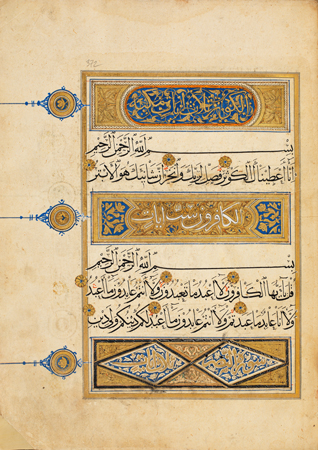 الكوثر
بسم الله الرحمن الرحيم
انا اعطيناك الكوثر فصل لربك وانحر ان شانئك هو الابتر
الكافرون ست ايات
بسم الله الرحمن الرحيم
قل يايها الكافرون لا اعبد ما تعبدون ولا انتم عابدون ما اعبد
ولا انا عابد ما عبدتم ولا انتم عابدون ما اعبد لكم دينكم ولي دين